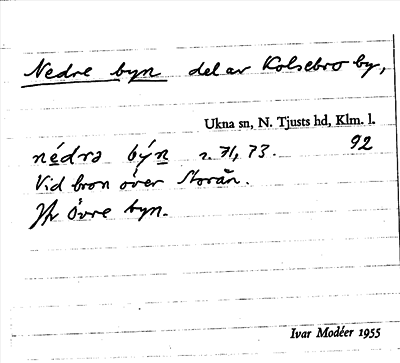 Nedre byn del av Kolsebro by,
Ukna sn, N. Tjusts hd, Klm. l.
nédrə býn r. 71, 73. 92
Vid bron över Storån.
Jfr Övre byn.
Ivar Modéer 1955